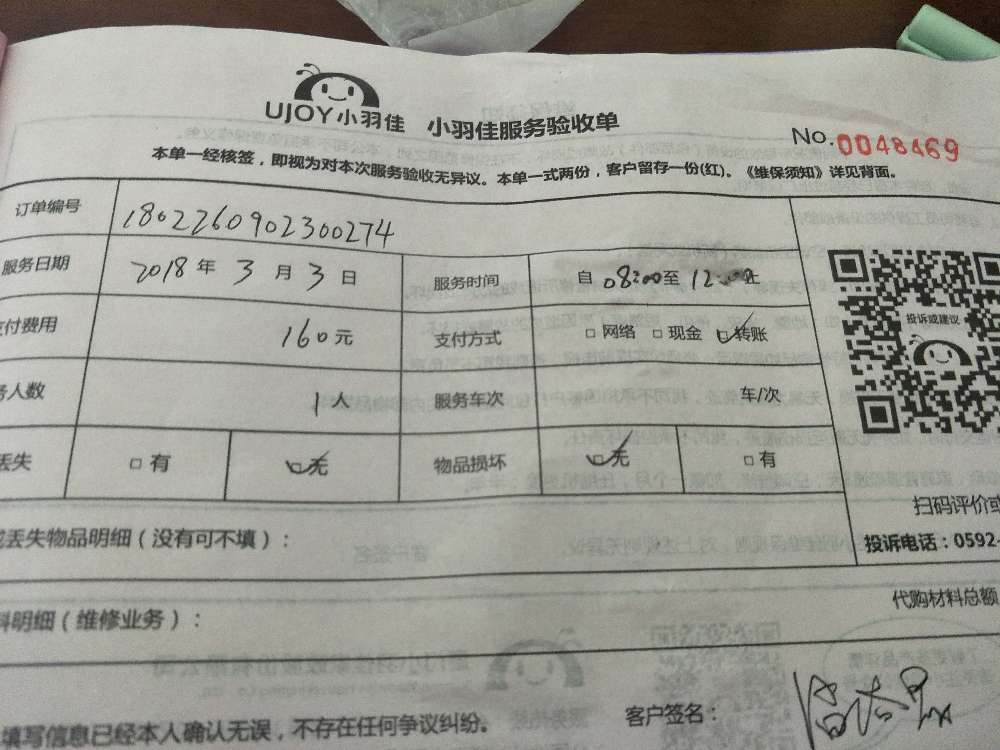 UJOY小羽佳 小羽佳服务验收单
No.0048469
本单一经核签，即视为对本次服务验收无异议。本单一式两份，客户留存一份(红)。《维保须知》详见背面。
订单编号 1802260902300274
服务日期 2018年3月3日 服务时间 自08:00至12:00止
付费用 160元 支付方式 □网络 □现金 ☑转账
务人数 1人 服务车次 车/次
丢失 □有 ☑无 物品损坏 ☑无 □有
投诉或建议
扫码评价或
丢失物品明细（没有可不填）：
投诉电话：0592-
料明细（维修业务）：
代购材料总额
填写信息已经本人确认无误，不存在任何争议纠纷。
客户签名：